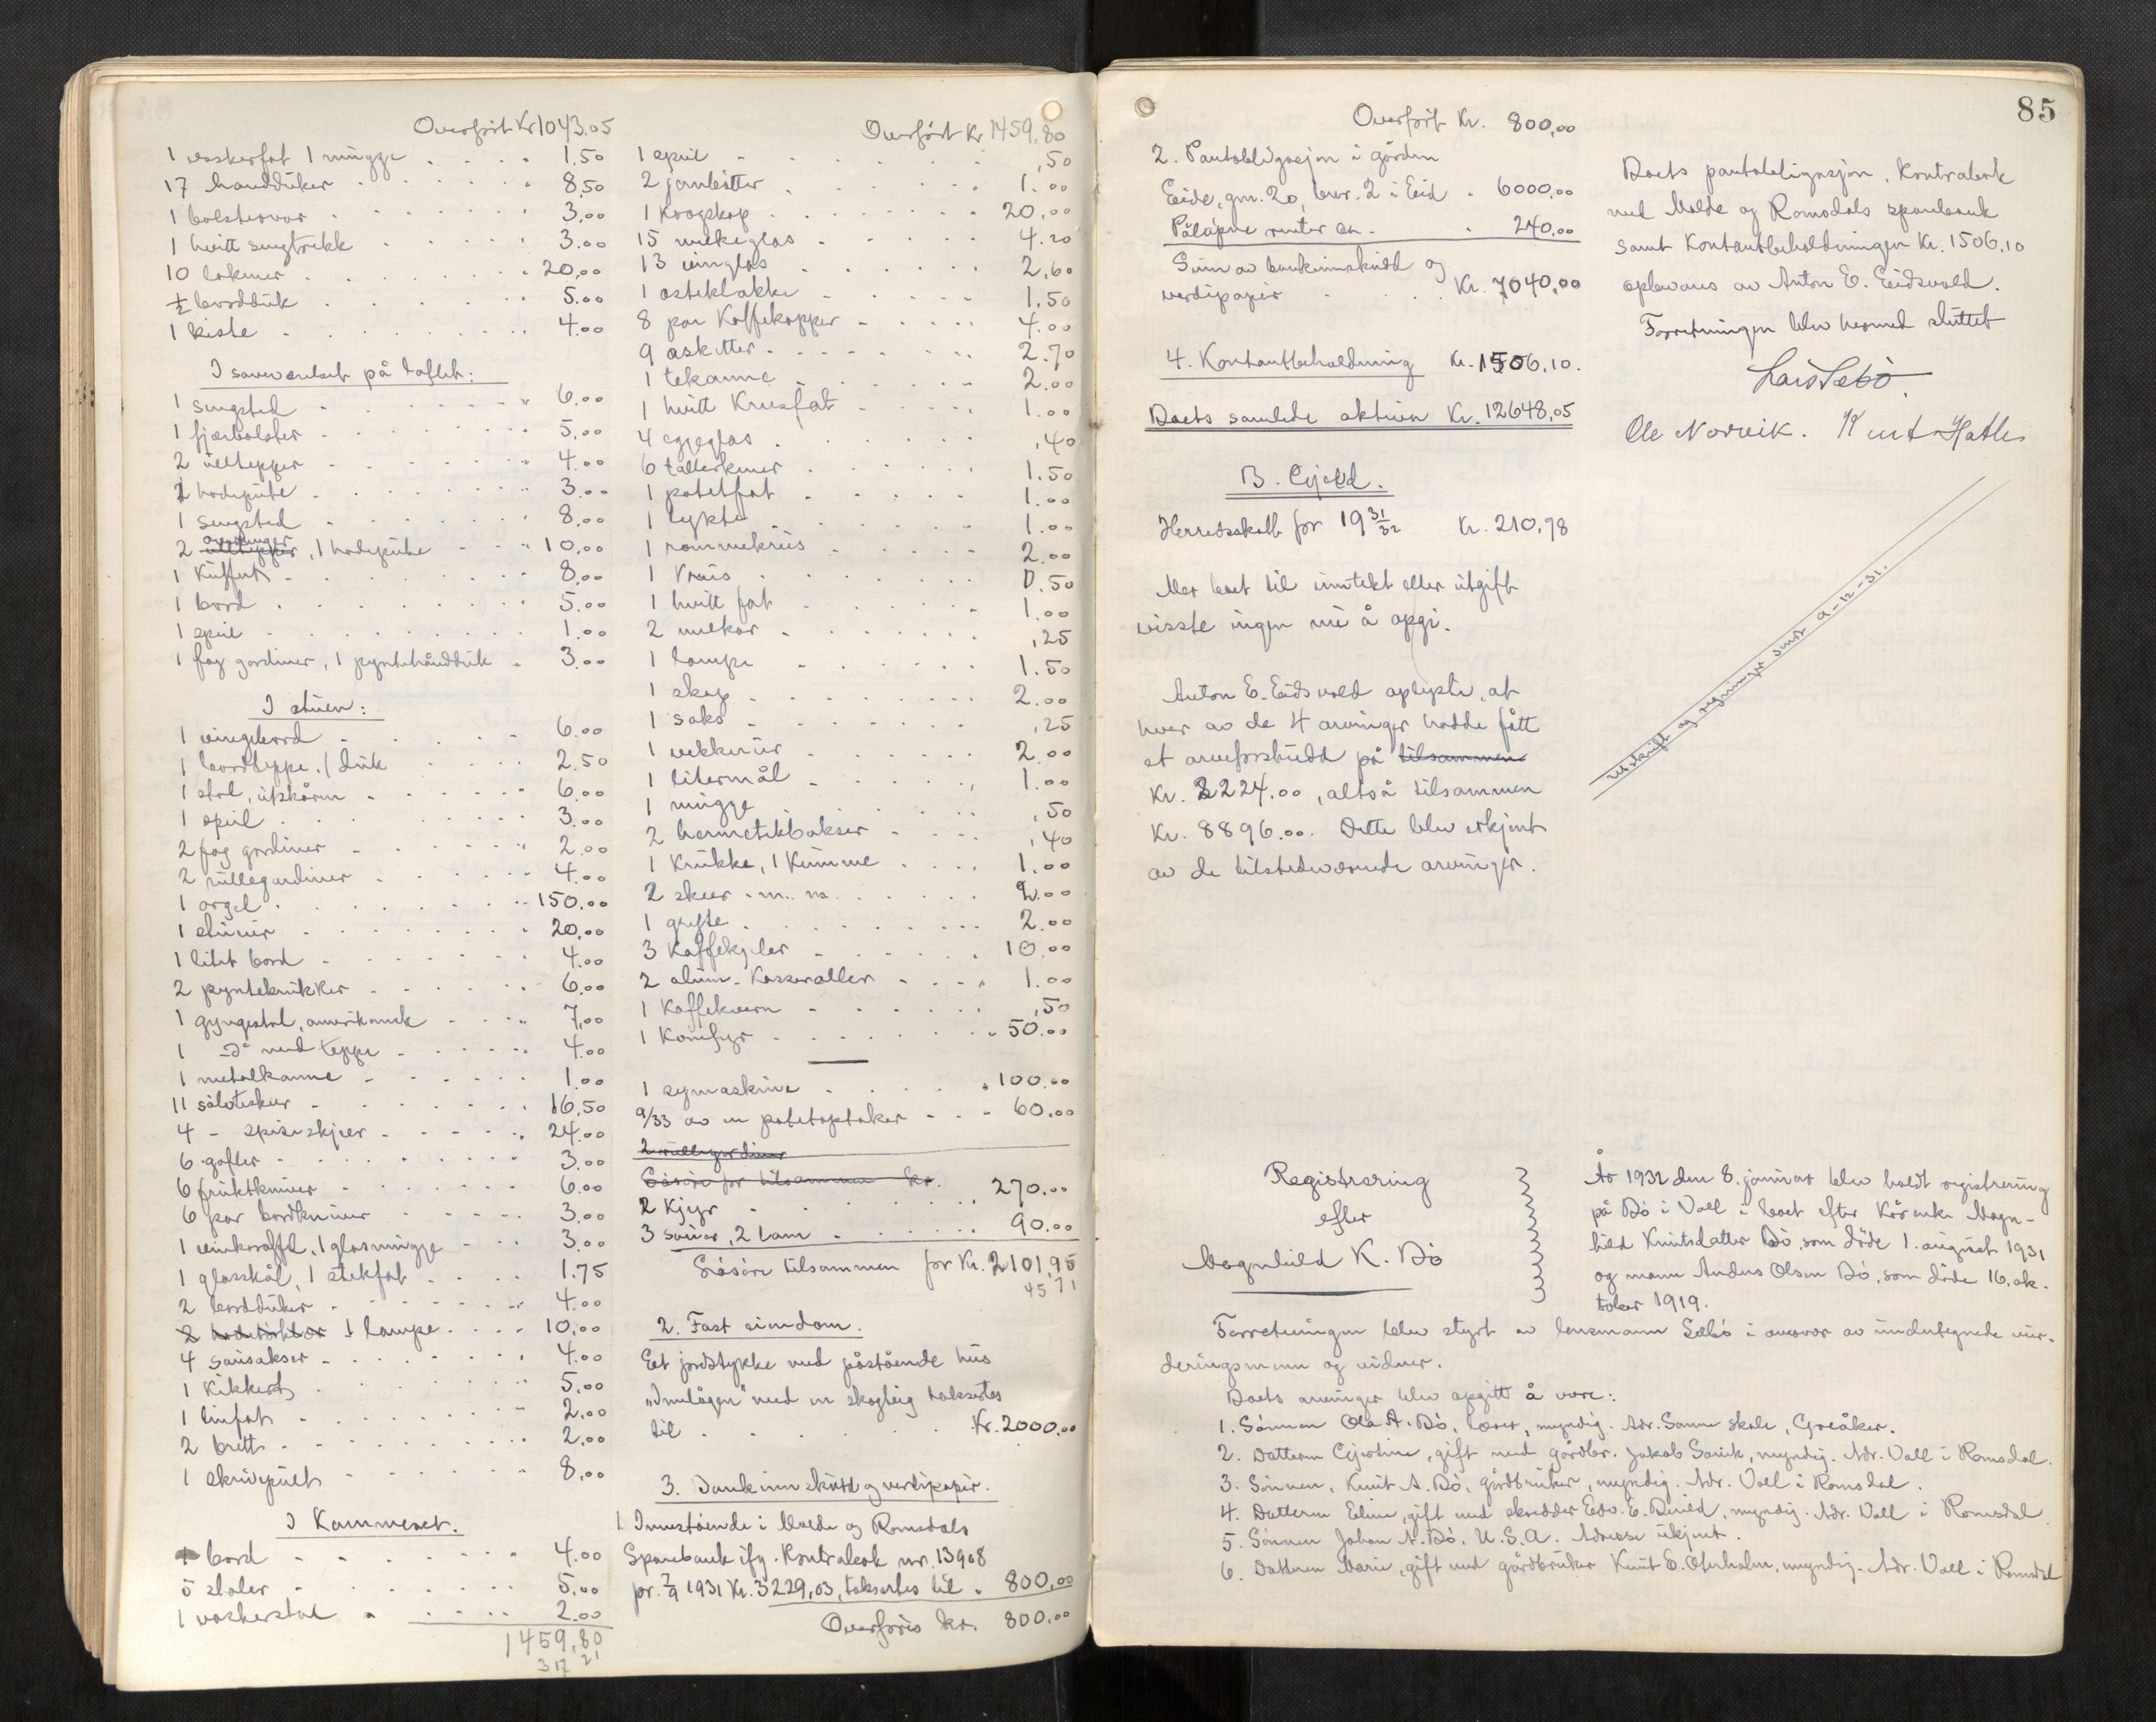 Overført Kr 1043,05
1 vaskerfat 1 mugge 1,50
17 handduker 8,50
1 bolstervar 3,00
1 hvitt sengtrekk 3,00
10 lakener 20,00
½ borddük 5.00
1 kiste 4.00
I soveværelset på loftet:
1 sengsted 6.00
1 fjærbolster 5,00
2 ülltepper 4.00
1 hodepüte 3.00
1 sengsted 8.00
2 ülltepper, 1 hodepüte 10,00
1 Küffert 8,00
1 bord 5.00
1 speil 1.00
1 fag gardiner, 1 pyntehåndduk 3.00
I stüen:
1 vingebord 6.00
1 bordteppe, 1 dük 2.50
1 stol, ütskåren 6.00
1 speil 3.00
2 fag gardiner 2.00
2 rüllegardiner 4.00
1 orgel 150.00
1 stüeür 20.00
1 litet bord 4.00
2 pyntekrükker 6.00
1 gyngestol, amerikansk 7,00
1 -d° med teppe 4.00
1 metalkanne 1.00
11 sølvteskeer 16,50
4 - spiseskjeer 24.00
6 gafler 3.00
6 früktkniver 6.00
6 par bordkniver 3.00
1 vinkaraffel, 1 glasmügge 3.00
1 glasskål, 1 stekfat 1.75
2 bordduker 4.00
1 lampe 10.00
4 sausakser 4.00
1 Kikkert 5.00
1 linfat 2.00
2 brett 2.00
1 skrivepült 8,00
I Kammerset.
1 bord 4.00
5 stoler 5.00
1 vaskerstol 2.00
1459,80
Overført Kr 1459,80
1 speil ,50
2 jernbøtter 1.00
1 Krogskap 20.00
15 melkeglas 4.20
13 vinglas 2,60
1 osteklokke 1,50
8 par Kaffekopper 4.00
9 asietter 2.70
1 tekanne 2.00
1 hvitt Krusfat 1.00
4 eggeglas ,40
6 tallerkener 1.50
1 potetfat 1.00
1 lykte 1.00
1 rømmekrüs 2.00
1 Krüs 0.50
1 hvitt fat 1.00
2 melkar ,25
1 lampe 1.50
1 skap 2.00
1 saks ,25
1 vekkerür 2.00
1 litermål 1.00
1 mügge ,50
2 hermetikbokser ,40
1 Krükke, 1 Kümme 1.00
2 skeer m. m. 2.00
1 gryte 2.00
3 Kaffekjeler 10.00
2 alüm. Kasseroller 1.00
1 Kaffekvern ,50
1 Komfyr 50.00
1 symaskine 100.00
9/33 av en potetoptaker 60.00
2 rüllegardiner
Løsøre for tilsammen kr.
2 Kjyr 270.00
3 sauer, 2 lam 90.00
Løsøre tilsammen for Kr. 2101,95
2. Fast eiendom.
Eet jordstykke med påstående hüs
"Innlågen" med en skogteig taksertes
til Kr. 2000.00
3. Bankinnskudd og verdipapir.
1 Innestående i Molde og Romsdals
Sparebank ifg. Kontrabok nr. 13908
pr. 7/9 1931 Kr. 3229,03, taksertes til 800,00
Overføres kr. 800.00
85
Overført Kr. 800,00
2. Pantobligasjon i gården
Eide, gnr. 20, bnr. 2 i Eid 6000,00
Påløpne renter av 240.00
Sum av bankinnskudd og
verdipapir Kr. 7040,00
4. Kontantbeholdning Kr. 1506,10.
Boets samlede aktiva Kr. 12648,05
B. Gjeld.
Herredsskatt for 19 31/32 Kr. 210,78
Mer boet til inntekt eller ütgift
visste ingen nu å opgi.
Anton E. Eidsvold oplyste, at
hver av de 4 arvinger hadde fått
et arveforskudd på tilsammen
Kr. 2224.00, altså tilsammen
Kr. 8896.00. Dette blev erkjent
av de tilstedeværende arvinger.
Boets pantobligasjon, Kontrabok
med Molde og Romsdals sparebank
samt Kontantbeholdningen Kr. 1506,10
opbevares av Anton E. Eidsvold.
Forretningen blev hermed sluttet
Lars Sebø.
Ole Norvik. Knut Hatle
Utskrift og regninger sendt 9-12-31.
Registrering
efter
Magnhild K. Bö
År 1932 den 8. januar blev holdt registrering
på Bö i Voll i boet efter Kårenke Magn-
hild Knütsdatter Bö, som döde 1. august 1931
og mann Anders Olsen Bö, som döde 16. ok-
tober 1919.
Forretningen blev styrt av lensmann Sebö i overvær av undertegnede vur-
deringsmenn og vidner.
Boets arvinger blev opgitt å være:
1. Sønnen Ola A. Bö, lærer, myndig. Adr. Sanne skole, Greåker.
2. Datteren Gjertine, gift med gårdbr. Jakob Savik, myndig. Adr. Voll i Romsdal.
3. Sønnen, Knut A. Bö, gårdbruker, myndig. Adr. Voll i Romsdal.
4. Datteren Eline, gift med skredder Edv. E. myndig. Adr. Voll i Romsdal
5. Sønnen Johan A. Bö, U.S.A. Adresse ükjent.
6. Datteren Marie, gift med gårdbruker Knüt E. myndig. Adr. Voll i Romsdal